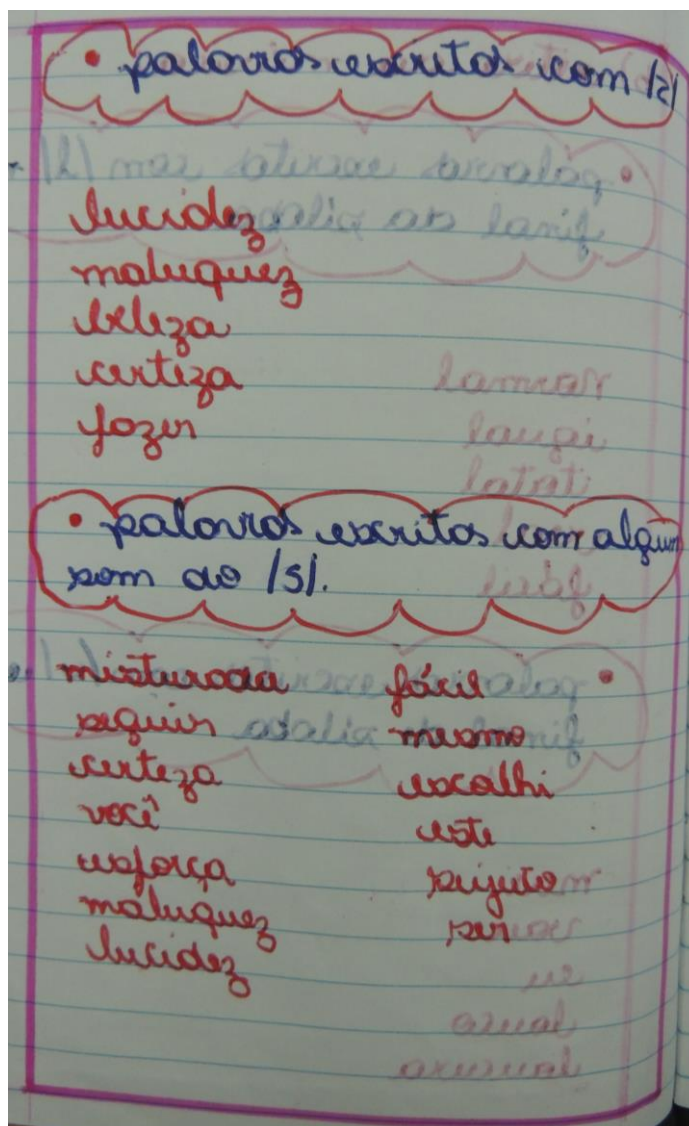 • palavras escritas com /z/
lucidez
maluquez
beleza
certeza
fazer
• palavras escritas com algum
som do /s/.
misturada
seguir
certeza
você
esforça
maluquez
lucidez
fácil
mesmo
escolhi
este
sujeito
ser